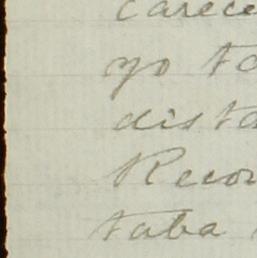 carece
yo ta
dista
Recor
taba